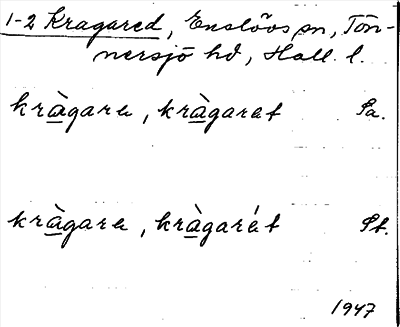 1-2 Kragared, Enslövs sn, Tön-
nersjö hd, Hall. l.
kràgarɐ, kràgarət Sa.
kràgarɐ, kràgarét St.
1947